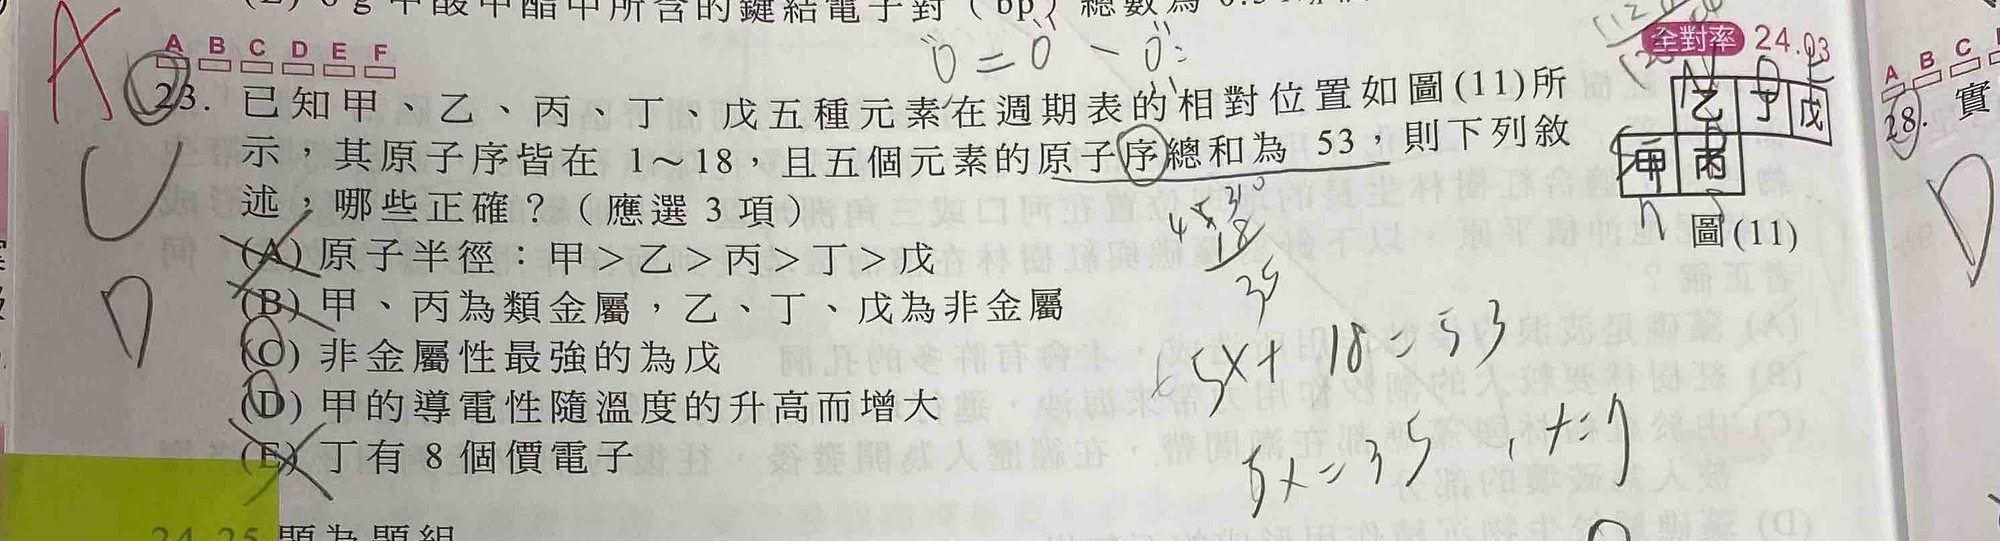 A B C D E F
全對率 24.03
23. 已知甲、乙、丙、丁、戊五種元素在週期表的相對位置如圖(11)所
示，其原子序皆在 1～18，且五個元素的原子序總和為 53，則下列敘
述，哪些正確？（應選 3 項）
(A) 原子半徑：甲＞乙＞丙＞丁＞戊
(B) 甲、丙為類金屬，乙、丁、戊為非金屬
(C) 非金屬性最強的為戊
(D) 甲的導電性隨溫度的升高而增大
(E) 丁有 8 個價電子
乙 丁 戊
甲 丙
圖(11)
5x+18=53
5x=35, x=7
A B C
28. 實
24-25 題為題組